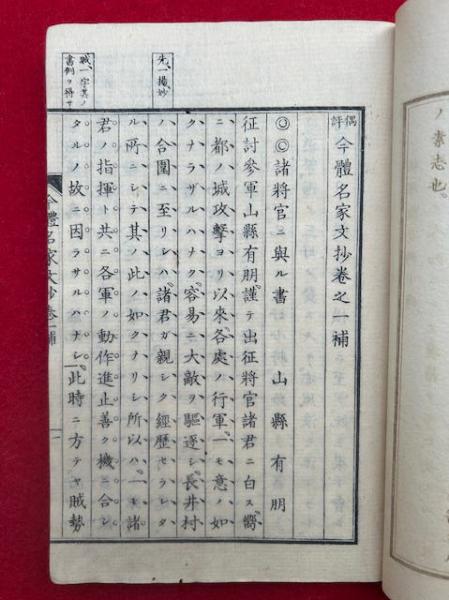 偶評 今體名家文抄卷之一補
◎◎諸將官ニ與ル書 山縣有朋
征討參軍山縣有朋謹テ出征將官諸君ニ白ス嚮
ニ都ノ城攻擊ヨリ以來各處ノ行軍一モ意ノ如
クナラザルハナク容易ニ大敵ヲ驅逐シ長井村
ノ合圍ニ至リシハ諸君ガ親シク經歷セラレタ
ル所ニシテ其ノ此ノ如クナリシ所以ハ一モ諸
君ノ指揮ト共ニ各軍ノ動作進止善ク機ニ合シ
タルノ故ニ因ラサルハナシ此時ニ方テヤ賊勢
先一揚妙
職一字其ノ
書例ヲ得
今體名家文抄卷一補
一
ノ素志也。